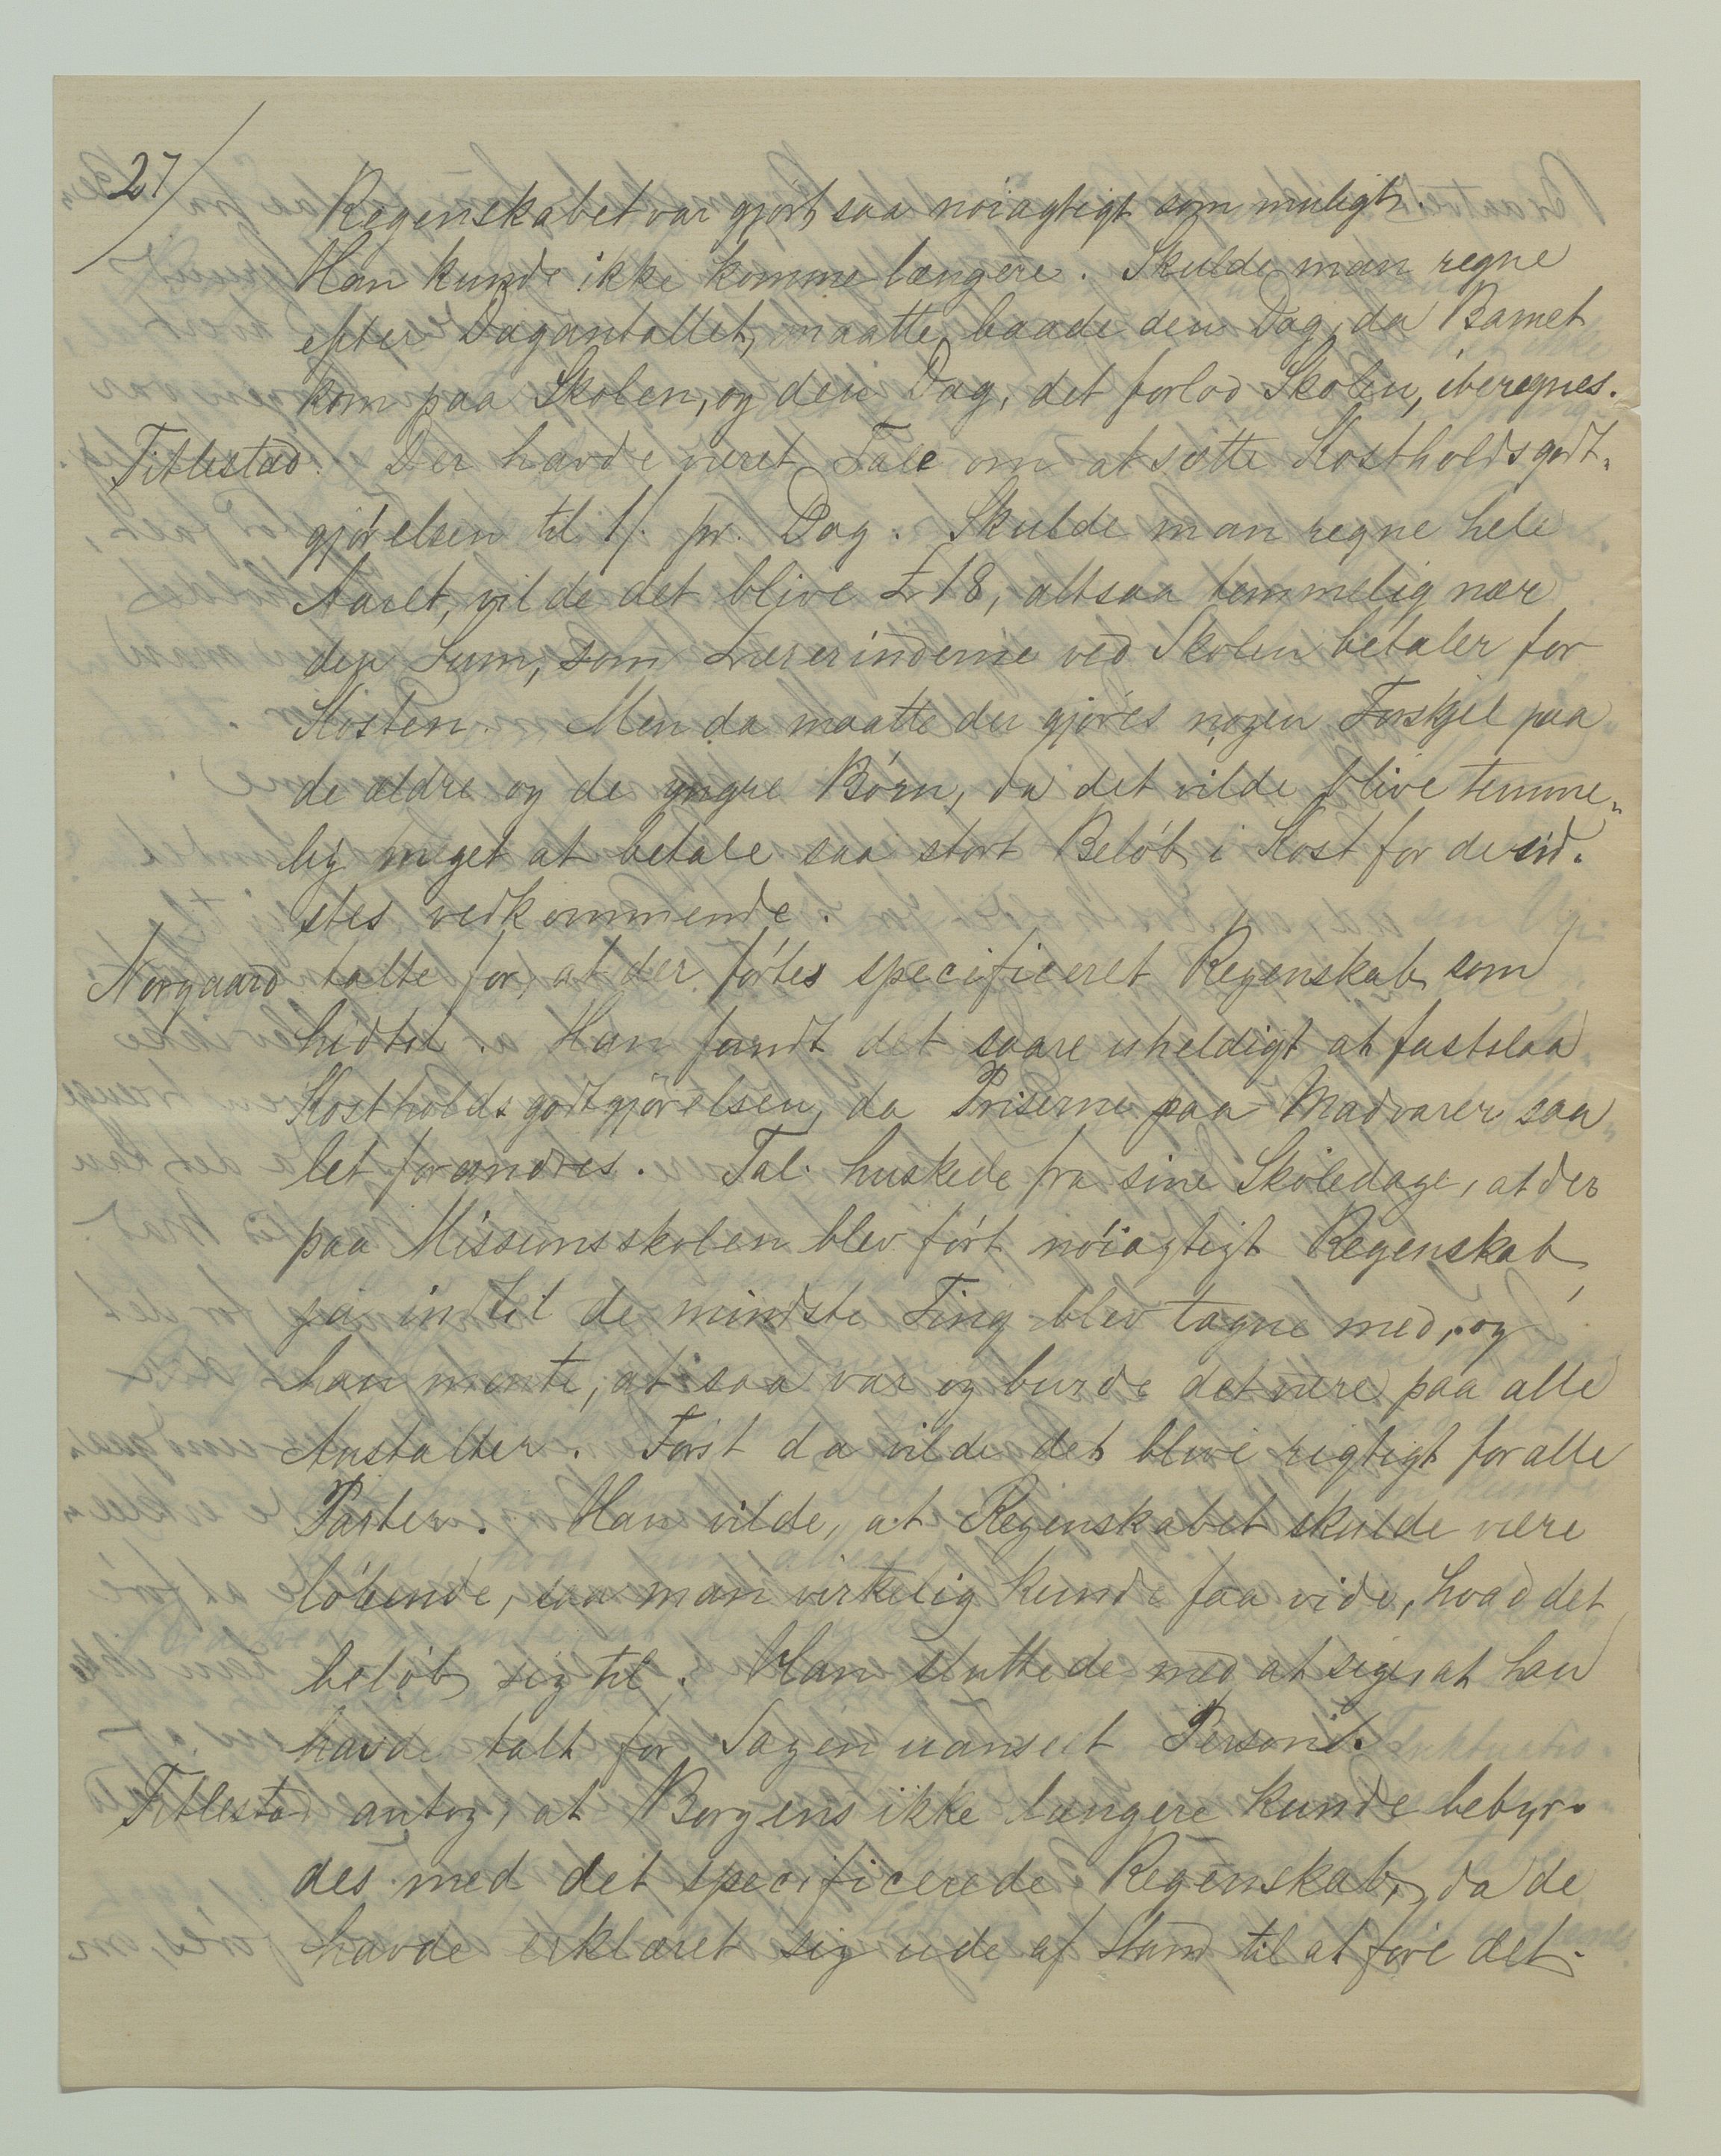 27/
Regenskabet var gjort saa nøiagtigt som muligt.
Han kunde ikke komme længere. Skulde man regne
efter Dagantallet, maatte baade den Dag, da Barnet
kom paa Skolen, og den Dag, det forlod Skolen, iberegnes.
Titlestad. Der havde været Tale om at sætte Kostholdsgodt-
gjørelsen til 1/. pr. Dag. Skulde man regne hele
Aaret, vilde det blive £18, altsaa temmelig nær
den Sum, som Lærerinderne ved Skolen betaler for
Kosten. Men da maatte der gjøres nogen Forskjel paa
de ældre og de yngre Børn, da det vilde blive temme-
lig meget at betale saa stort Beløb i Kost for de sid-
stes vedkommende.
Norgaard talte for, at der førtes specificeret Regenskab som
hidtil. Han fandt det saare uheldigt at fastslaa
Kostholdsgodtgjørelsen, da Priserne paa Madvarer saa
let forandres. Tal. huskede fra sine Skoledage, at der
paa Missionsskolen blev ført nøiagtigt Regenskab,
ja indtil de mindste Ting blev tagne med, og
han mente, at saa var og burde det være paa alle
Anstalter. Først da vilde det blive rigtigt for alle
Parter. Han vilde, at Regenskabet skulde være
løbende, saa man virkelig kunde faa vide, hvad det
beløb sig til. Han sluttede med at sige, at han
havde talt for Sagen uanseet Person.
Titlestad antog, at Borgens ikke længere kunde bebyr-
des med det specificerede Regenskab, da de
havde erklæret sig ude af Stand til at føre det.